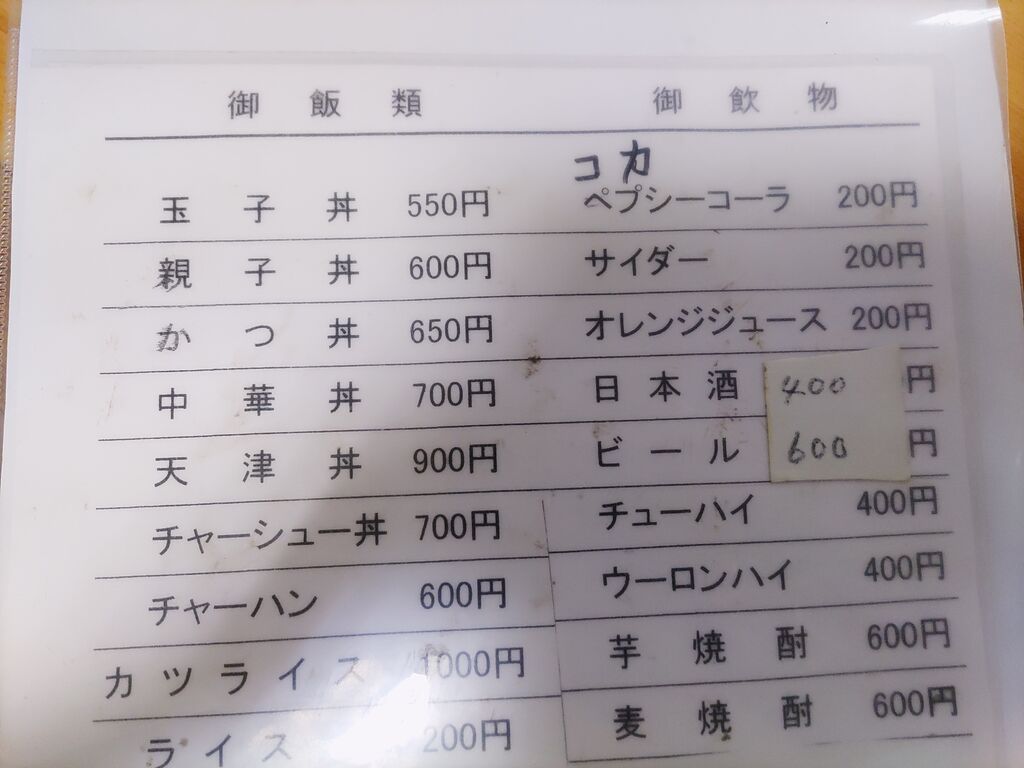 御飯類
玉子丼 550円
親子丼 600円
かつ丼 650円
中華丼 700円
天津丼 900円
チャーシュー丼 700円
チャーハン 600円
カツライス 1000円
ライス 200円
御飲物
コカ
ペプシーコーラ 200円
サイダー 200円
オレンジジュース 200円
日本酒 400円
ビール 600円
チューハイ 400円
ウーロンハイ 400円
芋焼酎 600円
麦焼酎 600円